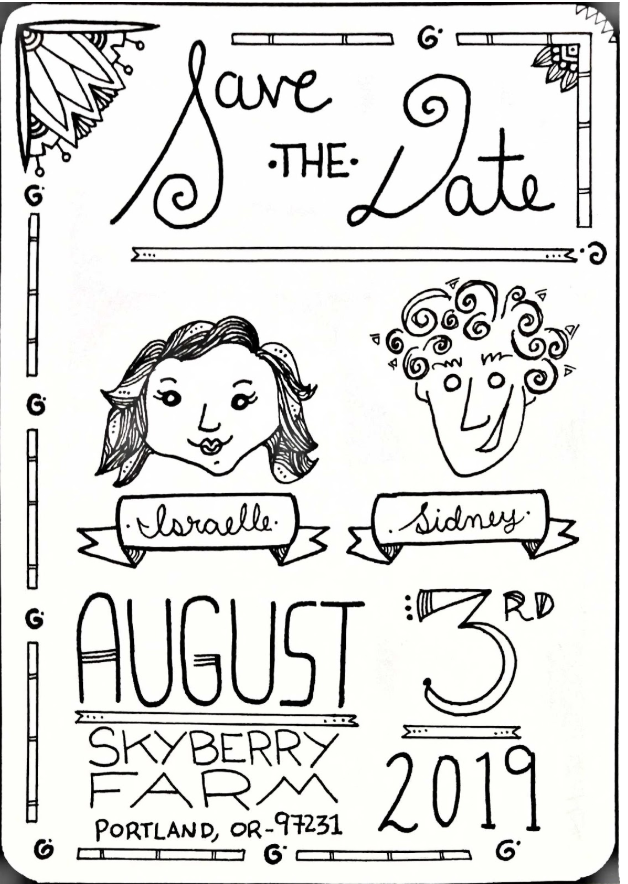 Save
·THE·
Date
·Israelle·
·Sidney·
AUGUST
3RD
SKYBERRY
FARM
PORTLAND, OR-97231
2019